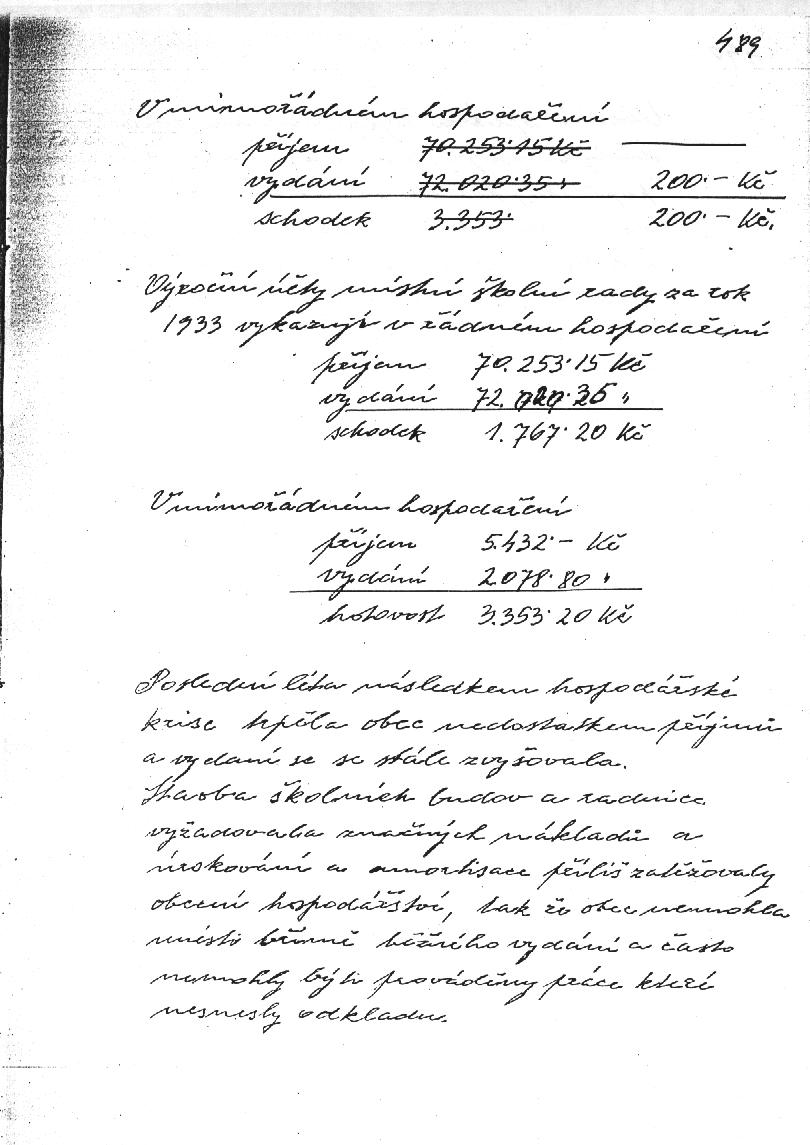 489
V mimořádném hospodaření
příjem 70.253·15 Kč ———
vydání 72.020·35 " 200·– Kč
schodek 3.353· 200·– Kč.
Výroční účty místní školní rady za rok
1933 vykazují v řádném hospodaření
příjem 70.253·15 Kč
vydání 72.020·35 "
schodek 1.767·20 Kč
V mimořádném hospodaření
příjem 5.432·– Kč
vydání 2.078·80 "
hotovost 3.353·20 Kč
Poslední léta následkem hospodářské
krise trpěla obec nedostatkem příjmů
a vydaní se se stále zvyšovala.
Stavba školních budov a radnice
vyžadovala značných nákladů a
úrokování a amortisace příliš zatěžovaly
obecní hospodářství, tak že obec nemohla
unésti břímě běžného vydání a často
nemohly býti prováděny práce které
nesnesly odkladu.